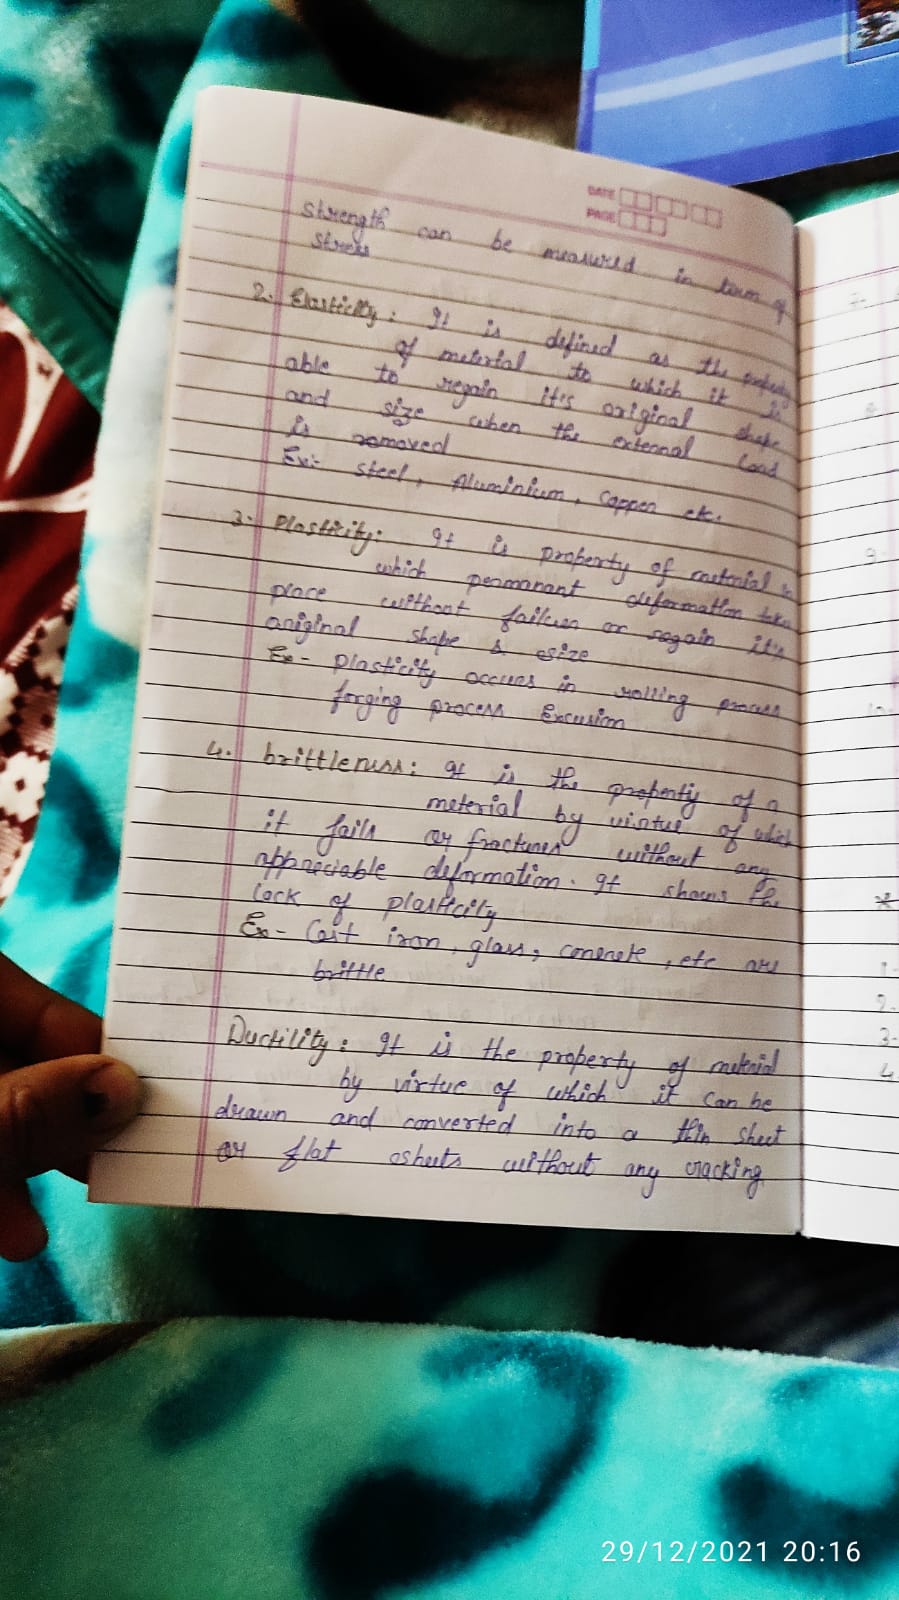 DATE
PAGE
Strength can be measured in term of
stress
2. Elasticity: It is defined as the property
of meterial to which it is
able to regain it's original shape
and size when the external load
is removed
Ex:- Steel, Aluminium, Copper etc.
3. Plasticity: It is property of meterial in
which permanant deformation take
place without failure or regain it's
original shape & size
Ex- Plasticity occurs in rolling process
forging process Excusim
4. brittleness: It is the property of a
meterial by virtue of which
it fails or fractures without any
appreciable deformation. It shows the
lack of plasticity
Ex- Cast iron, glass, conerete, etc are
brittle
Ductility: It is the property of meterial
by virtue of which it can be
drawn and converted into a thin sheet
or flat sheets without any cracking
7-
9-
10-
1-
2-
3-
4
29/12/2021 20:16